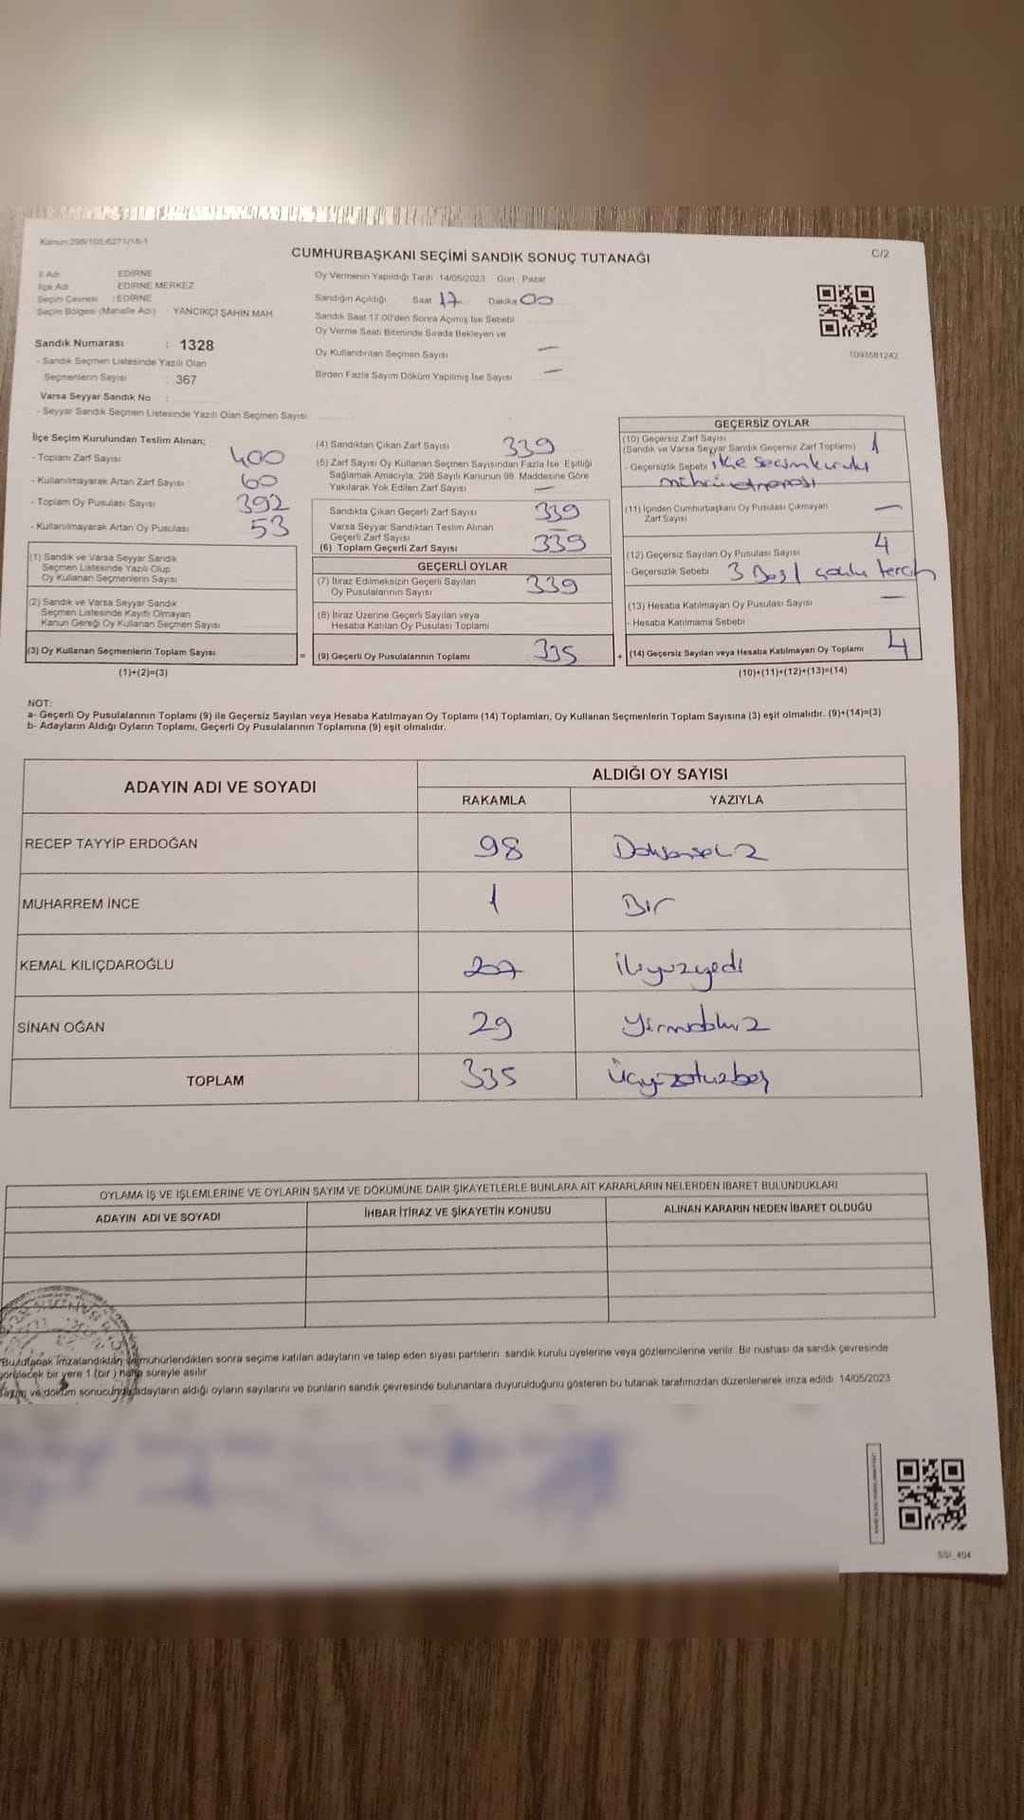 Kanun:298/105;6271/18-1
CUMHURBAŞKANI SEÇİMİ SANDIK SONUÇ TUTANAĞI
C/2
İl Adı : EDİRNE
İlçe Adı : EDİRNE MERKEZ
Seçim Çevresi : EDİRNE
Seçim Bölgesi (Mahalle Adı) YANCIKÇI ŞAHİN MAH.
Sandık Numarası : 1328
- Sandık Seçmen Listesinde Yazılı Olan
Seçmenlerin Sayısı : 367
Varsa Seyyar Sandık No :
- Seyyar Sandık Seçmen Listesinde Yazılı Olan Seçmen Sayısı:
Oy Vermenin Yapıldığı Tarih 14/05/2023 Gün : Pazar
Sandığın Açıldığı Saat 17 Dakika 00
Sandık Saat 17.00'den Sonra Açımış İse Sebebi
Oy Verme Saati Bitiminde Sırada Bekleyen ve
Oy Kullandırılan Seçmen Sayısı —
Birden Fazla Sayım Döküm Yapılmış İse Sayısı —
1093581242
İlçe Seçim Kurulundan Teslim Alınan;
- Toplam Zarf Sayısı 400
- Kullanılmayarak Artan Zarf Sayısı 60
- Toplam Oy Pusulası Sayısı 392
- Kullanılmayarak Artan Oy Pusulası 53
(1) Sandık ve Varsa Seyyar Sandık
Seçmen Listesinde Yazılı Olup
Oy Kullanan Seçmenlerin Sayısı
(2) Sandık ve Varsa Seyyar Sandık
Seçmen Listesinde Kayıtlı Olmayan
Kanun Gereği Oy Kullanan Seçmen Sayısı
(3) Oy Kullanan Seçmenlerin Toplam Sayısı
(1)+(2)=(3)
(4) Sandıktan Çıkan Zarf Sayısı 339
(5) Zarf Sayısı Oy Kullanan Seçmen Sayısından Fazla İse, Eşitliği
Sağlamak Amacıyla, 298 Sayılı Kanunun 98. Maddesine Göre
Yakılarak Yok Edilen Zarf Sayısı —
Sandıkta Çıkan Geçerli Zarf Sayısı 339
Varsa Seyyar Sandıktan Teslim Alınan
Geçerli Zarf Sayısı —
(6) Toplam Geçerli Zarf Sayısı 339
GEÇERLİ OYLAR
(7) İtiraz Edilmeksizin Geçerli Sayılan
Oy Pusulalarının Sayısı 339
(8) İtiraz Üzerine Geçerli Sayılan veya
Hesaba Katılan Oy Pusulası Toplamı
= (9) Geçerli Oy Pusulalarının Toplamı 335
GEÇERSİZ OYLAR
(10) Geçersiz Zarf Sayısı
(Sandık ve Varsa Seyyar Sandık Geçersiz Zarf Toplamı) 1
- Geçersizlik Sebebi ilçe seçim kurulu
mührü
(11) İçinden Cumhurbaşkanı Oy Pusulası Çıkmayan
Zarf Sayısı —
(12) Geçersiz Sayılan Oy Pusulası Sayısı 4
- Geçersizlik Sebebi 3 Boş 1 çoklu tercih
(13) Hesaba Katılmayan Oy Pusulası Sayısı —
- Hesaba Katılmama Sebebi
+ (14) Geçersiz Sayılan veya Hesaba Katılmayan Oy Toplamı 4
(10)+(11)+(12)+(13)=(14)
NOT:
a- Geçerli Oy Pusulalarının Toplamı (9) ile Geçersiz Sayılan veya Hesaba Katılmayan Oy Toplamı (14) Toplamları, Oy Kullanan Seçmenlerin Toplam Sayısına (3) eşit olmalıdır. (9)+(14)=(3)
b- Adayların Aldığı Oyların Toplamı, Geçerli Oy Pusulalarının Toplamına (9) eşit olmalıdır.
ADAYIN ADI VE SOYADI
ALDIĞI OY SAYISI
RAKAMLA YAZIYLA
RECEP TAYYİP ERDOĞAN 98 Doksansekiz
MUHARREM İNCE 1 Bir
KEMAL KILIÇDAROĞLU 207 ikiyüzyedi
SİNAN OĞAN 29 Yirmidokuz
TOPLAM 335 Üçyüzotuzbeş
OYLAMA İŞ VE İŞLEMLERİNE VE OYLARIN SAYIM VE DÖKÜMÜNE DAİR ŞİKAYETLERLE BUNLARA AİT KARARLARIN NELERDEN İBARET BULUNDUKLARI
ADAYIN ADI VE SOYADI İHBAR İTİRAZ VE ŞİKAYETİN KONUSU ALINAN KARARIN NEDEN İBARET OLDUĞU
Bu tutanak imzalandıktan ve mühürlendikten sonra seçime katılan adayların ve talep eden siyasi partilerin sandık kurulu üyelerine veya gözlemcilerine verilir. Bir nüshası da sandık çevresinde
görülecek bir yere 1 (bir) hafta süreyle asılır.
Sayım ve döküm sonucunda adayların aldığı oyların sayılarını ve bunların sandık çevresinde bulunanlara duyurulduğunu gösteren bu tutanak tarafımızdan düzenlenerek imza edildi. 14/05/2023
SSI_404